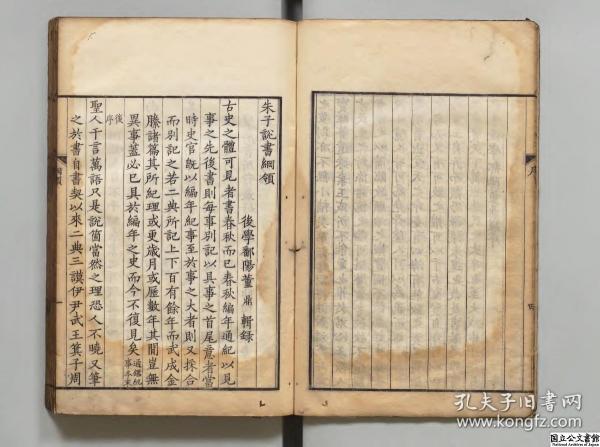 朱子說書綱領
後學鄱陽董鼎輯錄
古史之體可見者書春秋而已春秋編年通紀以見
事之先後書則每事别記以具事之首尾意者當
時史官旣以編年紀事至於事之大者則又採合
而别記之若二典所記上下百有餘年而武成金
縢諸篇其所紀理或更歲月或歷數年其間豈無
異事蓋必已具於編年之史而今不復見矣通鑑紀事本末
後序
聖人千言萬語只是說箇當然之理恐人不曉又筆
之於書自書契以來二典三謨伊尹武王箕子周
孔夫子旧书网
www.kongfz.com
国立公文書館
National Archives of Japan